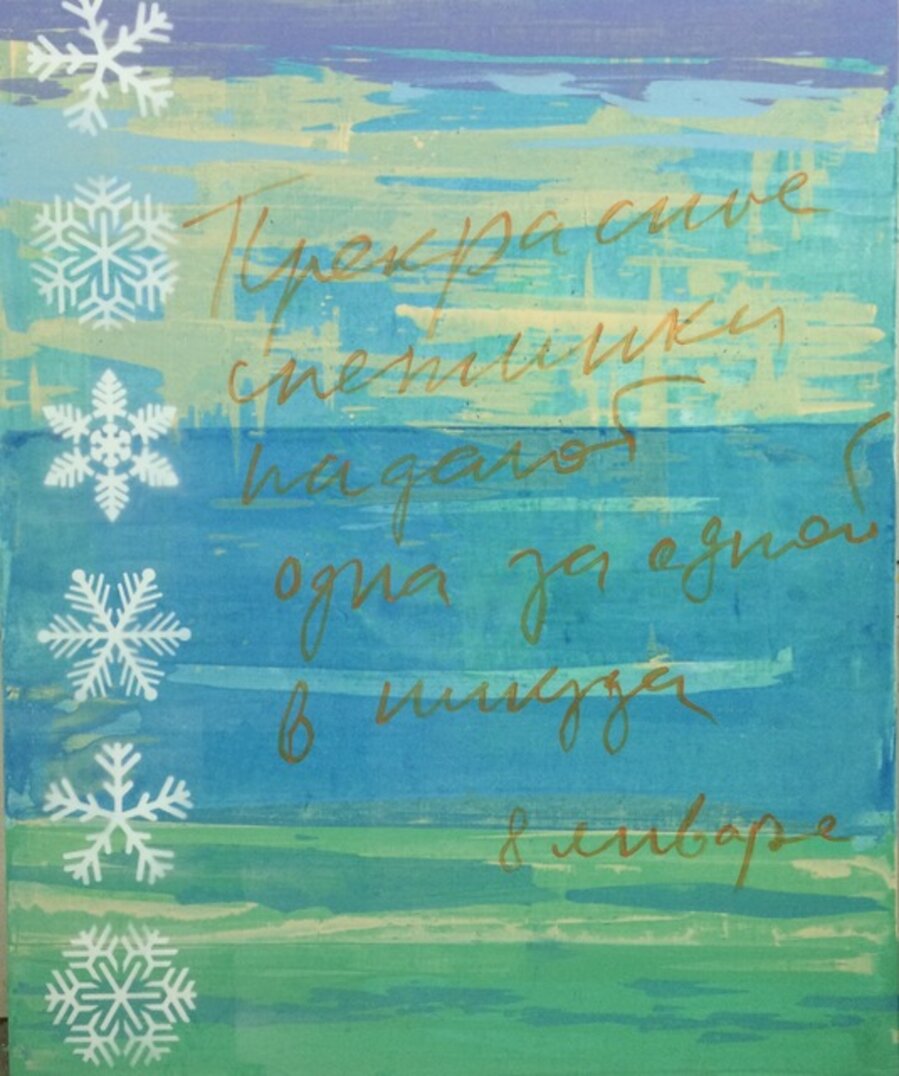 Прекрасные
снежинки
падают
одна за одной
в никуда
8 январе